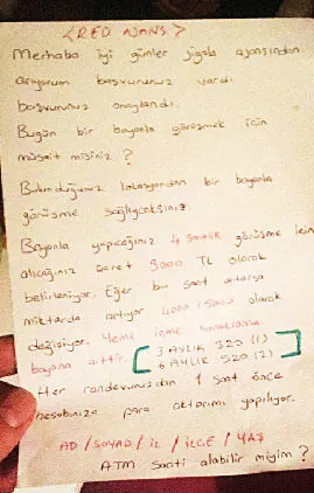 <RED AJANS>
Merhaba iyi günler jigolo ajansından
arıyorum başvurunuz vardı.
başvurunuz onaylandı.
Bugün bir bayanla görüşmek için
müsait misiniz ?
Bulunduğunuz lokasyondan bir bayanla
görüşme sağlıyacaksınız.
Bayanla yapıcağınız 4 saatlik görüşme için
alıcağınız ücret 3000 TL olarak
belirleniyor. Eğer bu saat artarsa
miktarda artıyor 4000 / 5000 olarak
değişiyor. Yeme içme konaklama
bayana aittir.
[ 3 AYLIK 320 (1)
6 AYLIK 520 (2) ]
Her randevunuzdan 1 saat önce
hesabınıza para aktarımı yapılıyor.
AD / SOYAD / İL / İLÇE / YAŞ
ATM saati alabilir miyim ?